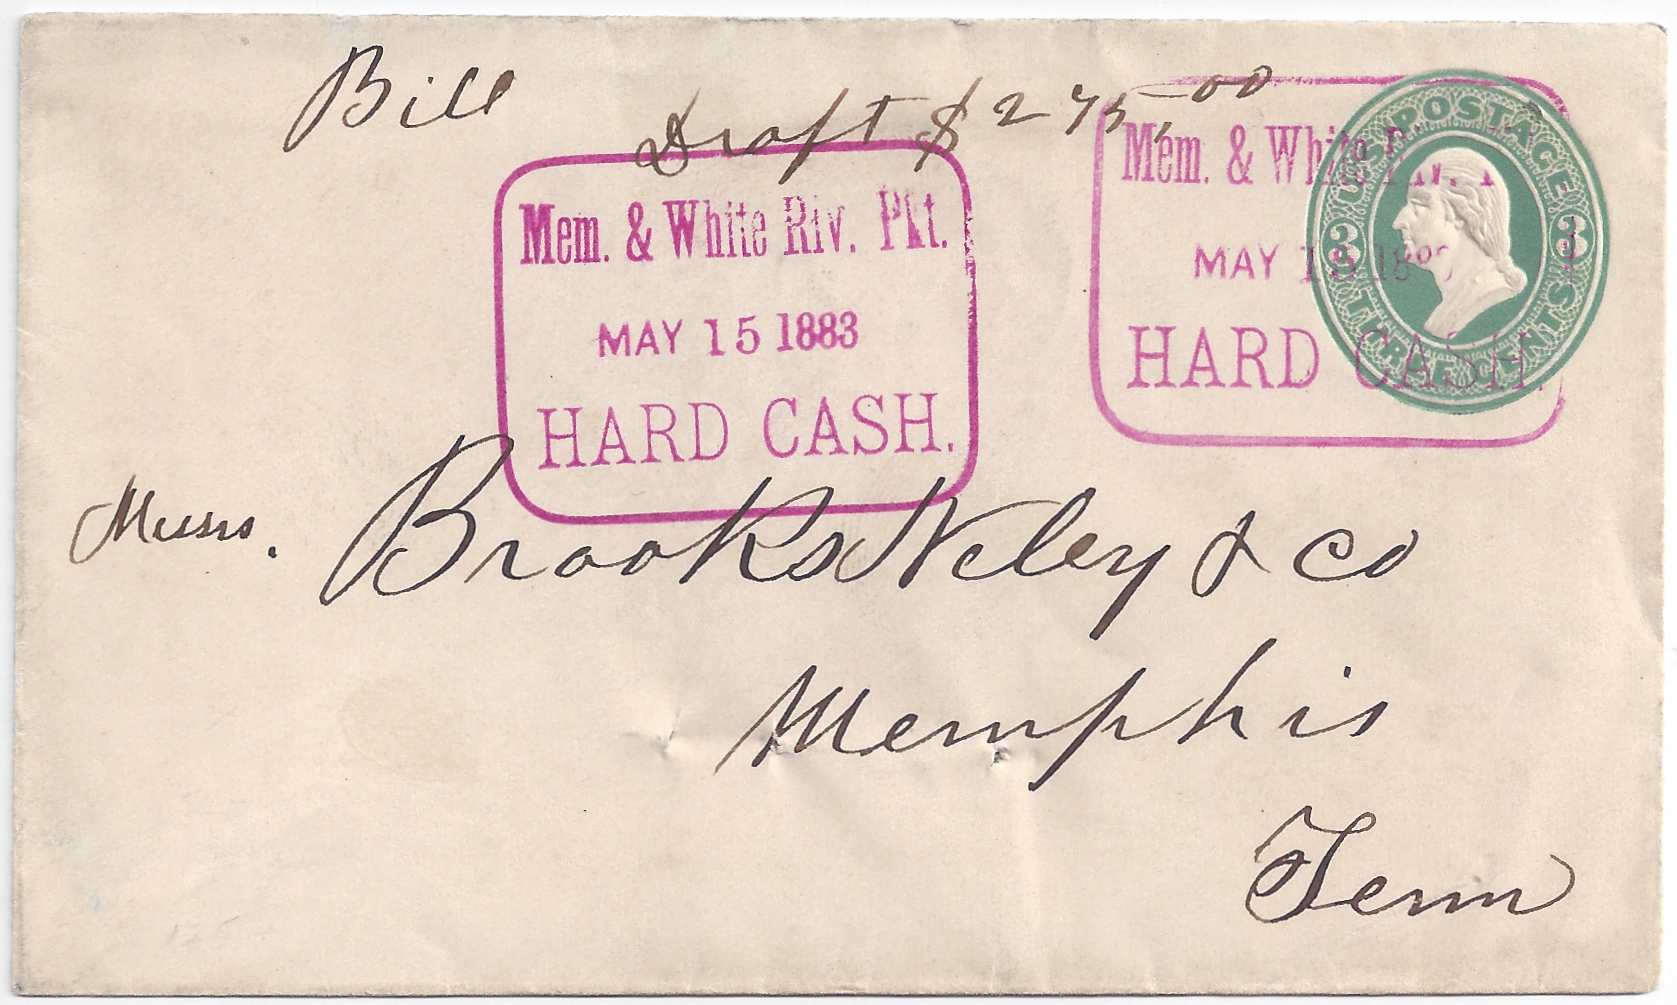 Bill
Draft $275,00
Mem. & White Riv. Pkt.
MAY 15 1883
HARD CASH.
Mem. & White Riv.
MAY 15 1883
HARD CASH.
U.S. POSTAGE
3 3
THREE CENTS
Messrs. Brooks Neley & Co
Memphis
Tenn